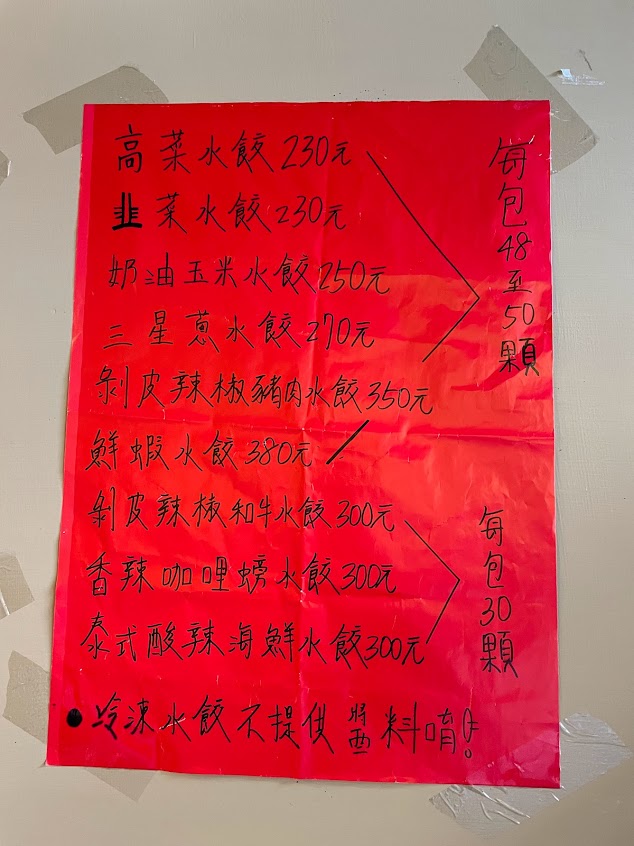 高菜水餃230元
韭菜水餃230元
奶油玉米水餃250元
三星蔥水餃270元
剝皮辣椒豬肉水餃350元
鮮蝦水餃380元
每包48至50顆
剝皮辣椒和牛水餃300元
香辣咖哩螃水餃300元
泰式酸辣海鮮水餃300元
每包30顆
●冷凍水餃不提供醬料唷!